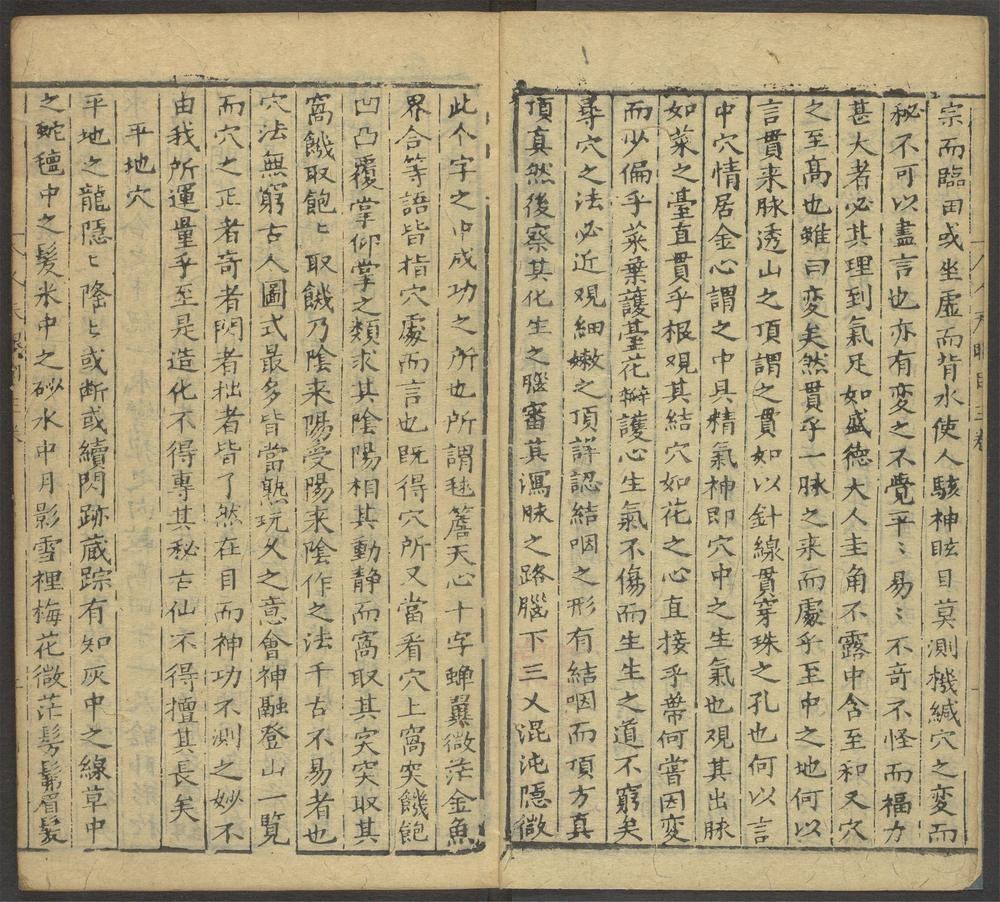 宗而臨田或坐虛而背水使人駭神眩目莫測機緘穴之変而
秘不可以盡言也亦有変之不覺平〻易〻不奇不怪而福力
甚大者必其理到氣足如盛德大人圭角不露中含至和又穴
之至高也雖曰変矣然貫乎一脉之来而處乎至中之地何以
言貫来脉透山之頂謂之貫如以針線貫穿珠之孔也何以言
中穴情居金心謂之中具精氣神即穴中之生氣也观其出脉
如菜之臺直貫乎根观其結穴如花之心直接乎蒂何嘗因変
而少偏乎菜葉護臺花瓣護心生氣不傷而生生之道不窮矣
尋穴之法必近观細嫩之頂詳認結咽之形有結咽而頂方真
頂真然後察其化生之腦審其瀉脉之路腦下三乂混沌隱微
此个字之中成功之所也所謂毬簷天心十字蟬翼微茫金魚
界合等語皆指穴處而言也既得穴所又當看穴上窩突饑飽
凹凸覆掌仰掌之類求其陰陽相其動静而窩取其突突取其
窩饑取飽〻取饑乃陰来陽受陽来陰作之法千古不易者也
穴法無窮古人圖式最多皆當熟玩久之意會神融登山一覽
而穴之正者竒者閃者拙者皆了然在目而神功不測之妙不
由我所運量乎至是造化不得專其秘古仙不得擅其長矣
平地穴
平地之龍隱〻隆〻或断或續閃跡蔵踪有如灰中之線草中
之蛇氊中之髮米中之砂水中月影雪裡梅花微茫髣髴眉髮